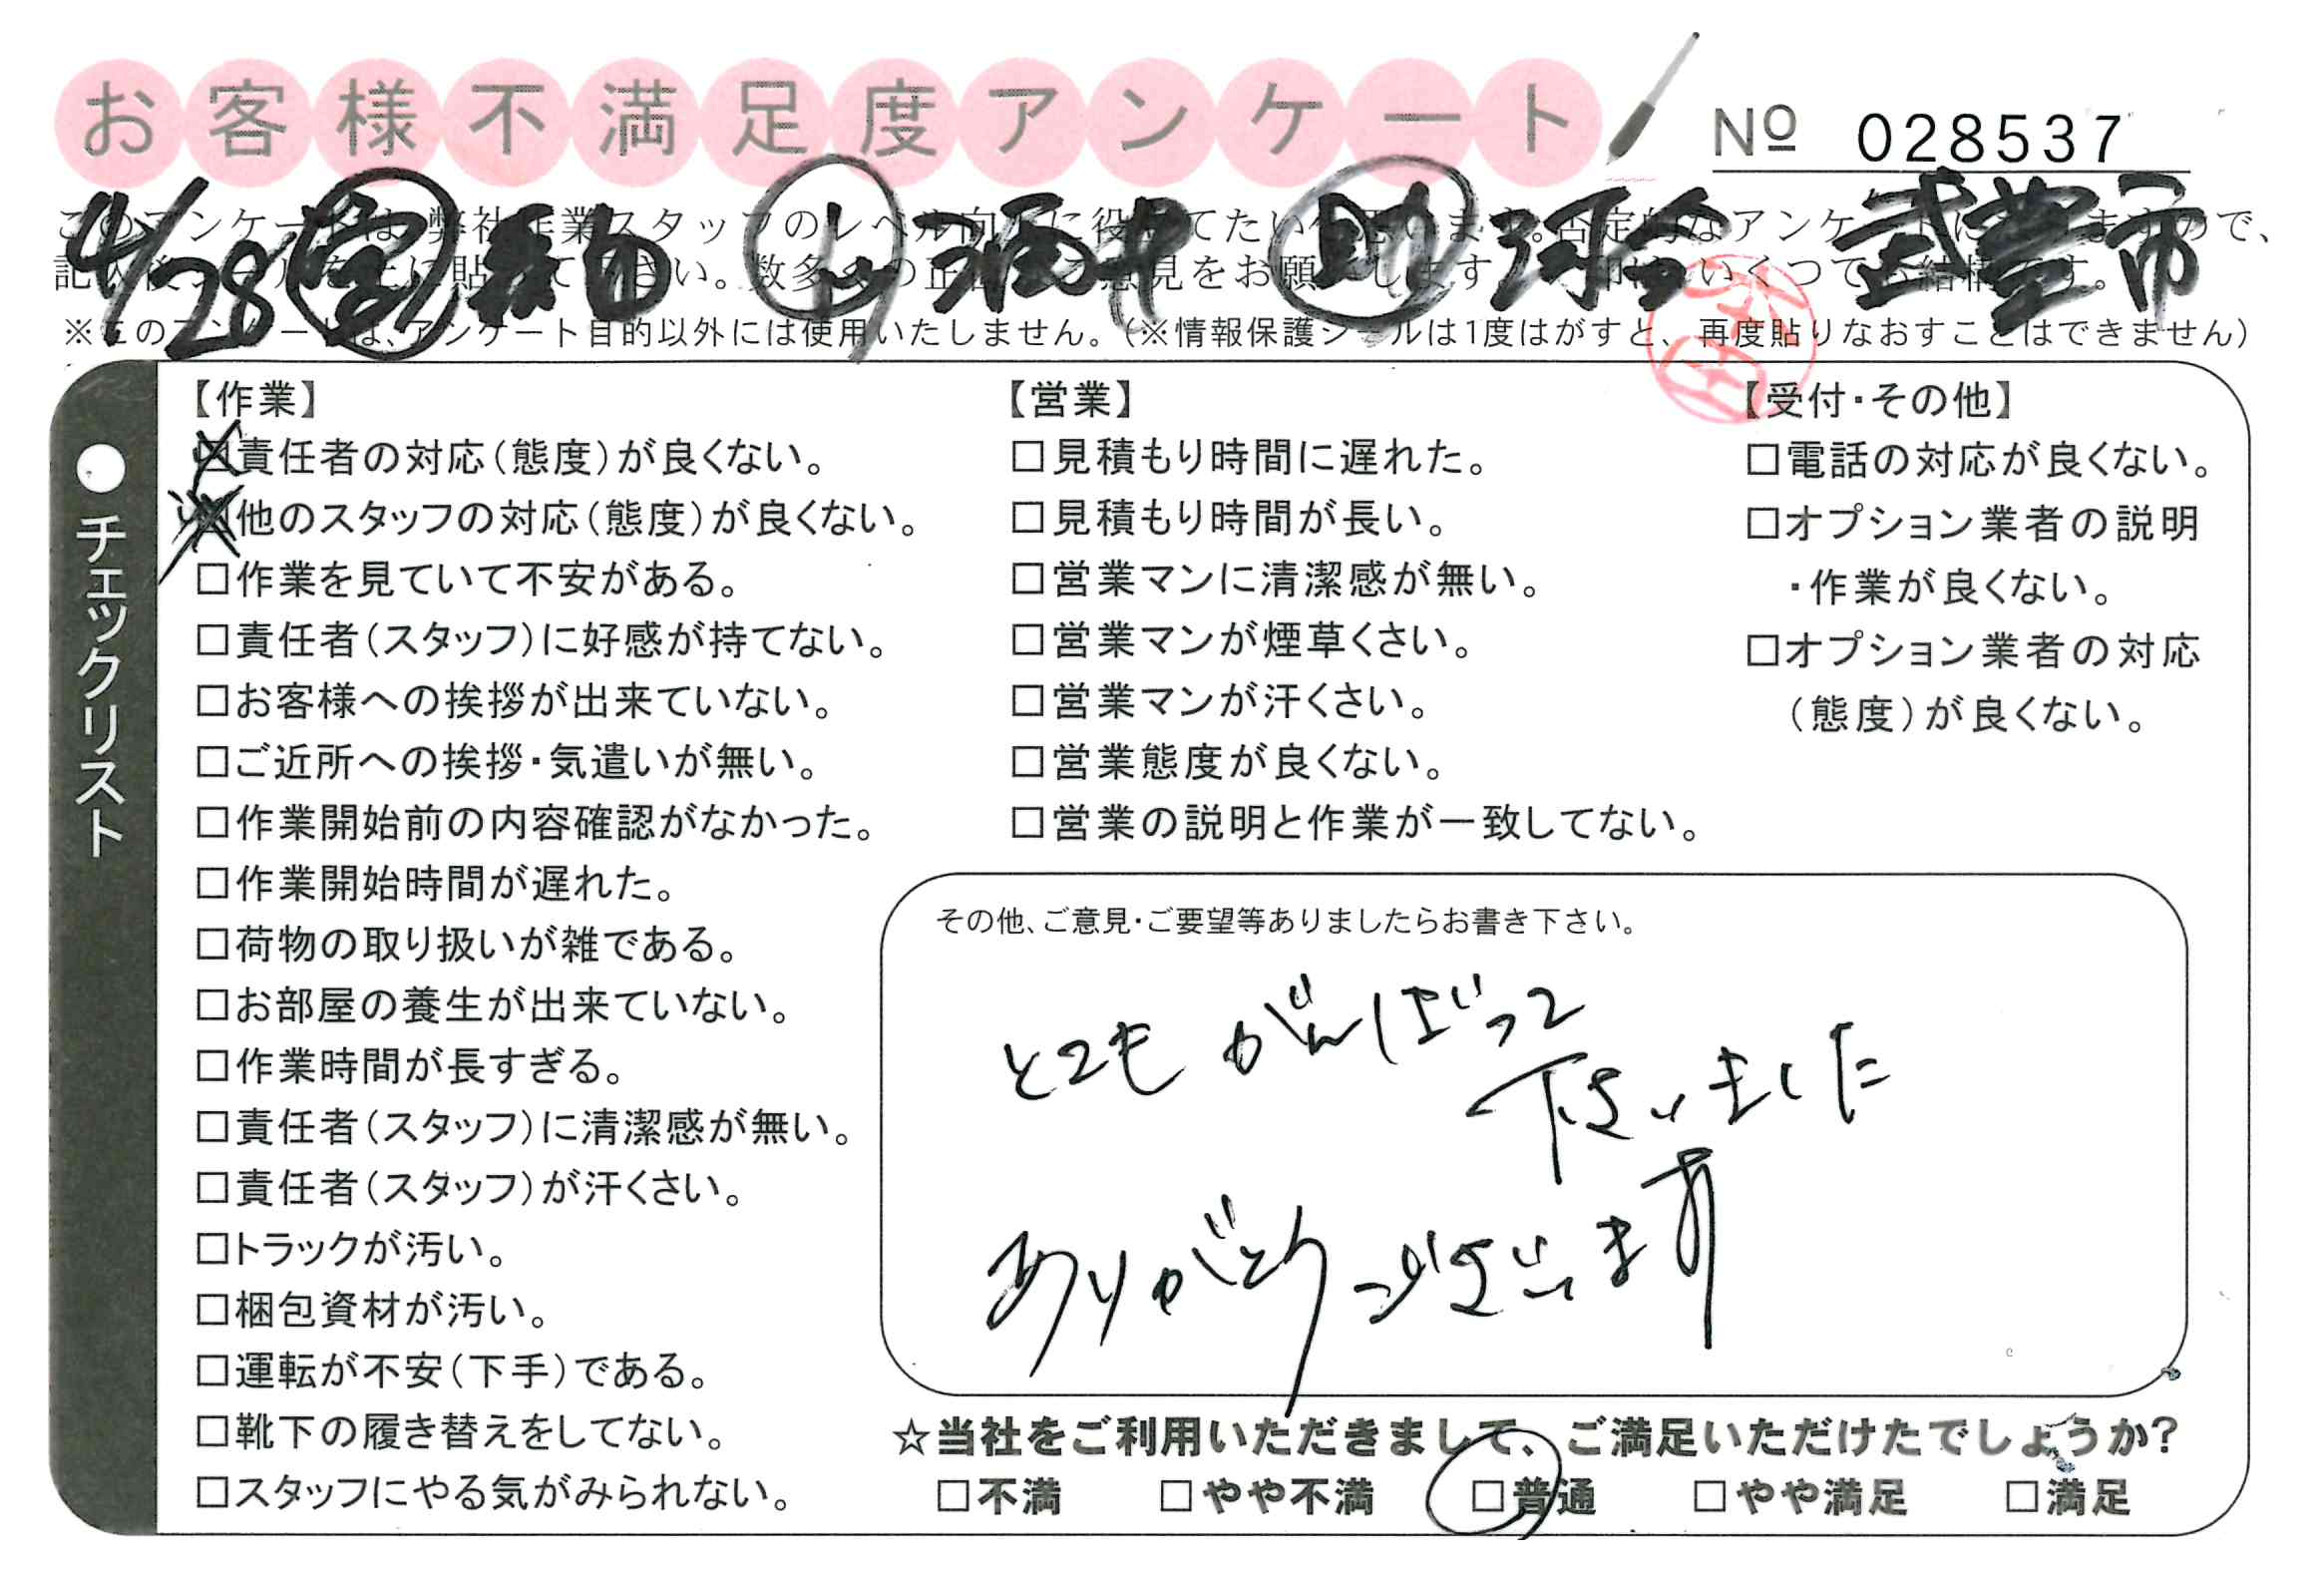 お客様不満足度アンケート
№ 028537
4/28 宮 山 酒井 助 河合 武豊市
※このアンケートは、アンケート目的以外には使用いたしません。(※情報保護シールは1度はがすと、再度貼りなおすことはできません)
●チェックリスト
【作業】
□責任者の対応(態度)が良くない。
□他のスタッフの対応(態度)が良くない。
□作業を見ていて不安がある。
□責任者(スタッフ)に好感が持てない。
□お客様への挨拶が出来ていない。
□ご近所への挨拶・気遣いが無い。
□作業開始前の内容確認がなかった。
□作業開始時間が遅れた。
□荷物の取り扱いが雑である。
□お部屋の養生が出来ていない。
□作業時間が長すぎる。
□責任者(スタッフ)に清潔感が無い。
□責任者(スタッフ)が汗くさい。
□トラックが汚い。
□梱包資材が汚い。
□運転が不安(下手)である。
□靴下の履き替えをしてない。
□スタッフにやる気がみられない。
【営業】
□見積もり時間に遅れた。
□見積もり時間が長い。
□営業マンに清潔感が無い。
□営業マンが煙草くさい。
□営業マンが汗くさい。
□営業態度が良くない。
□営業の説明と作業が一致してない。
【受付・その他】
□電話の対応が良くない。
□オプション業者の説明
・作業が良くない。
□オプション業者の対応
(態度)が良くない。
その他、ご意見・ご要望等ありましたらお書き下さい。
とてもがんばって
下さいました
ありがとうございます
☆当社をご利用いただきまして、ご満足いただけたでしょうか?
□不満 □やや不満 □普通 □やや満足 □満足